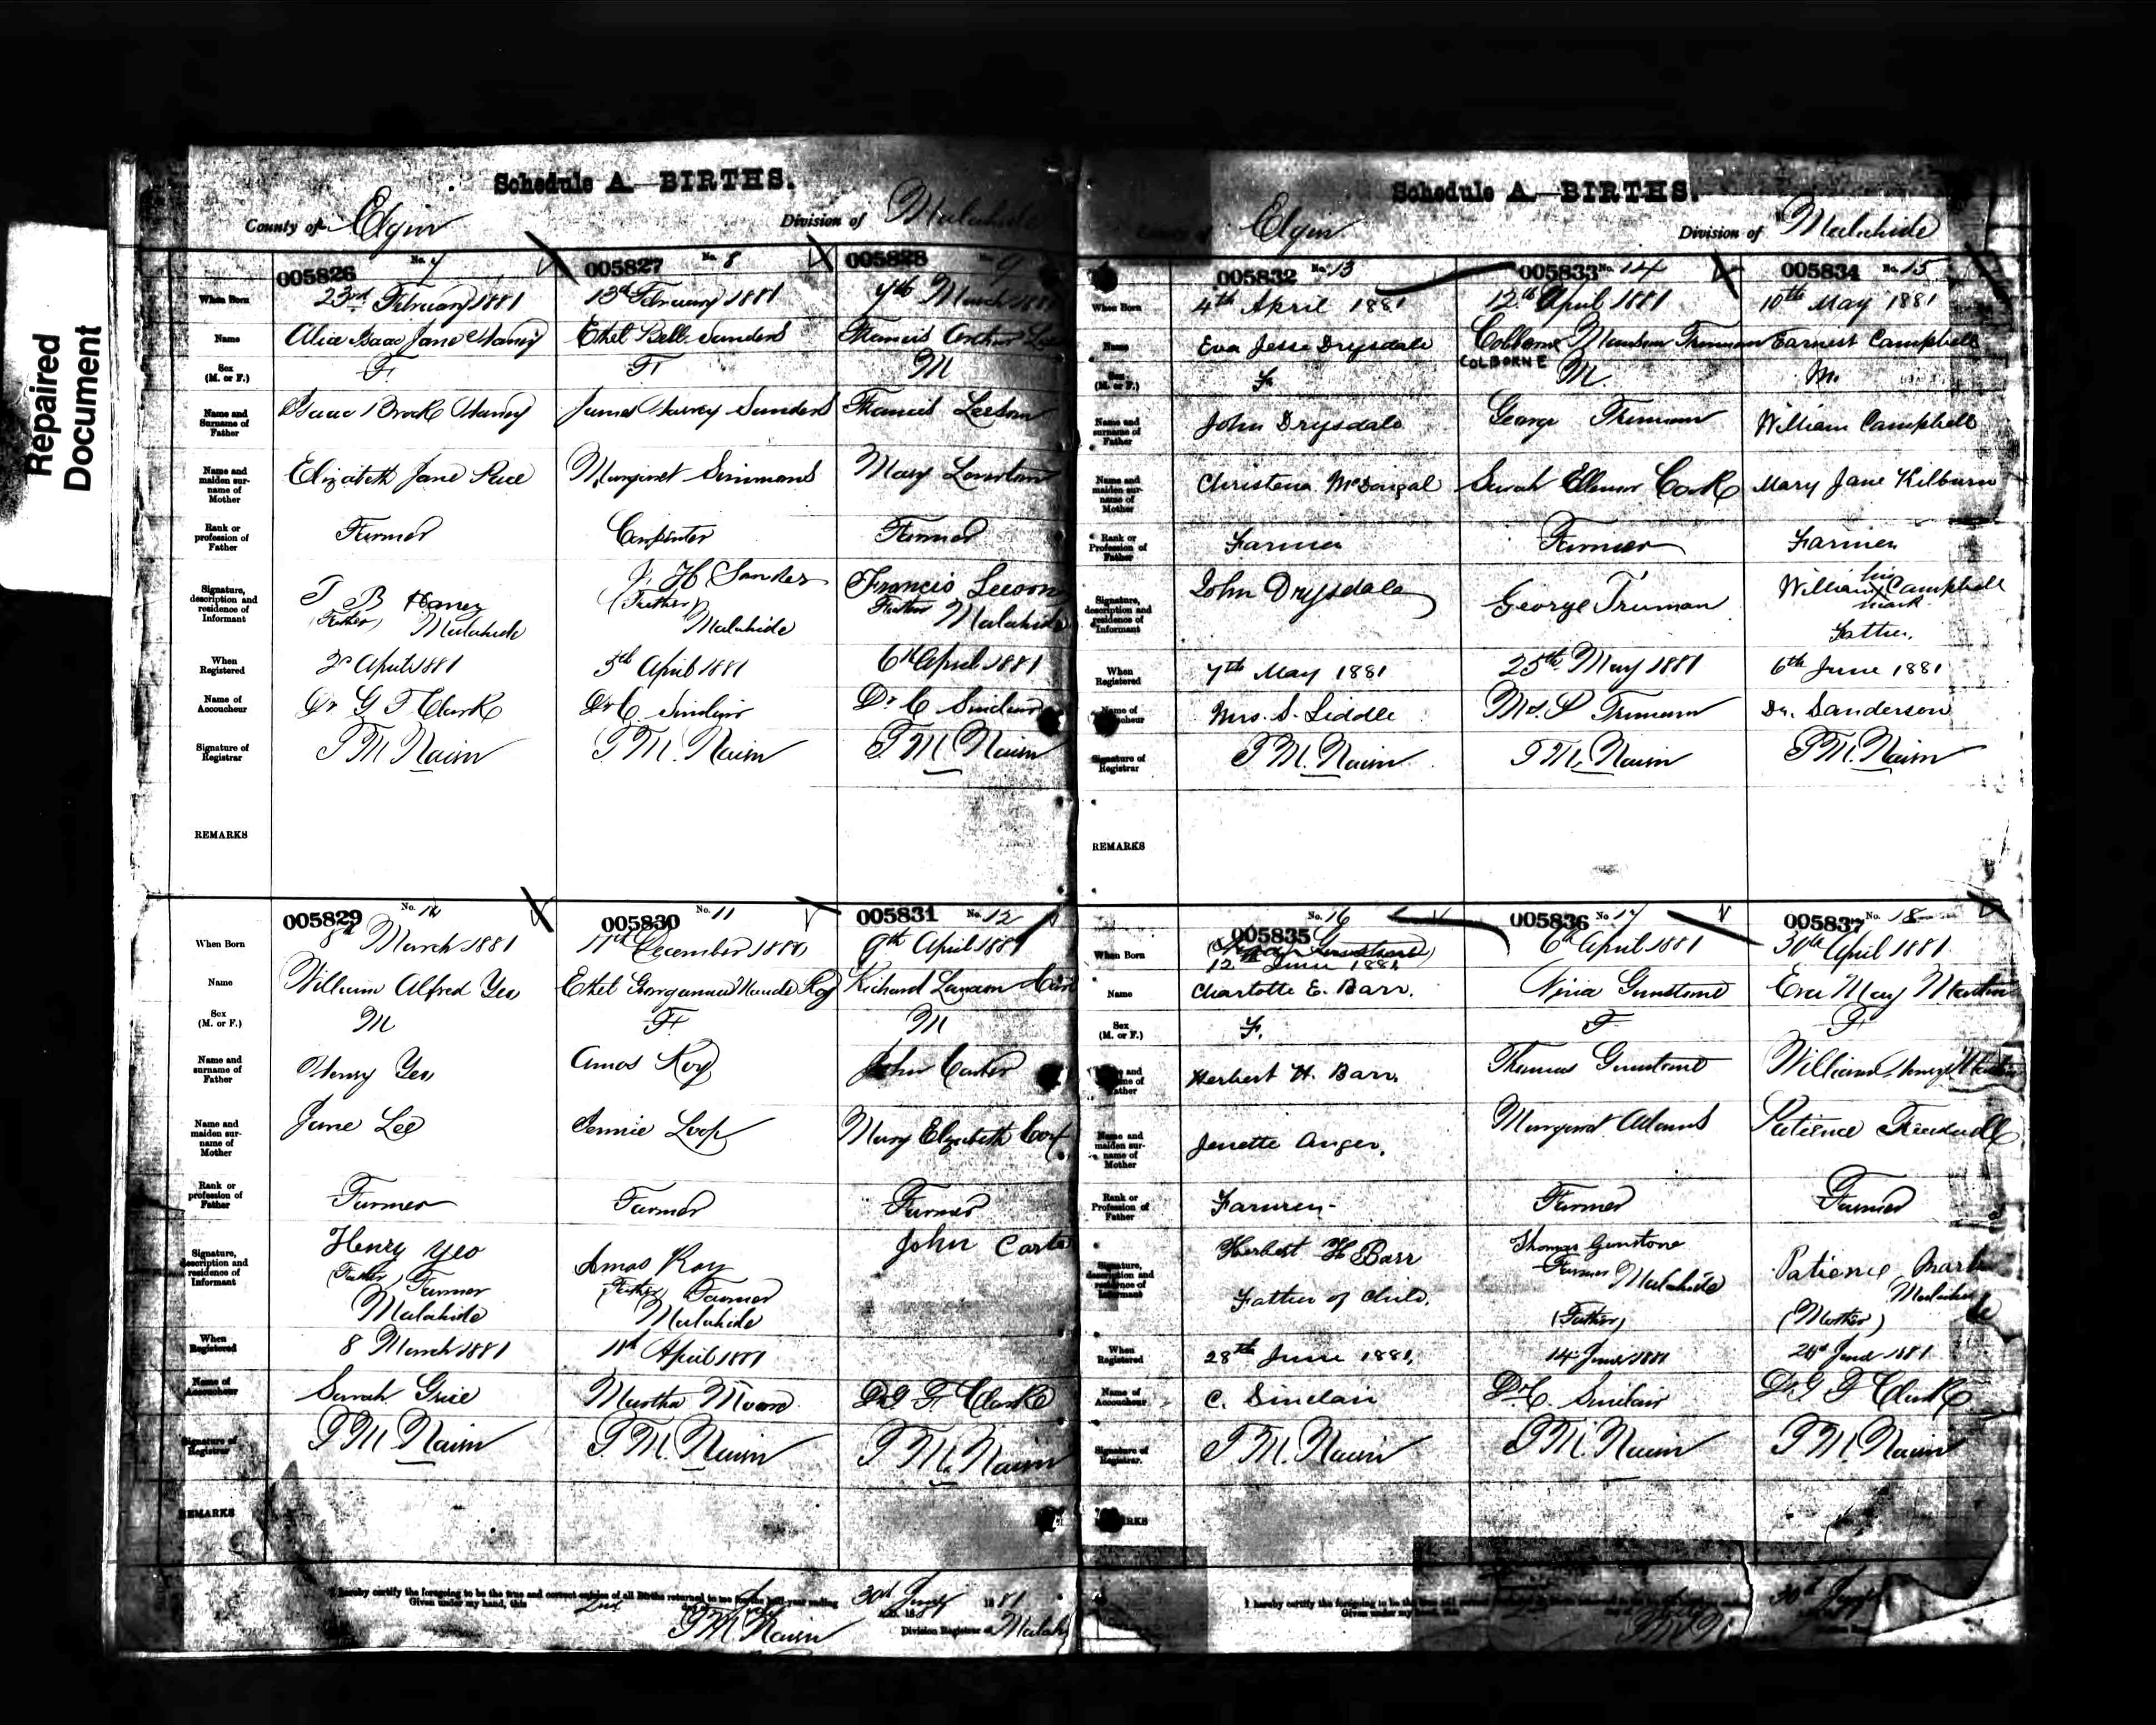 Repaired
Document
Schedule A.—BIRTHS.
County of Elgin Division of Malahide
005826 No. 7
When Born 23rd February 1881
Name Alice Isaac Jane Haney
Sex (M. or F.) F.
Name and Surname of Father Isaac Brock Haney
Name and maiden surname of Mother Elizabeth Jane Rice
Rank or profession of Father Farmer
Signature, description and residence of Informant I B Haney
(Father) Malahide
When Registered 2d April 1881
Name of Accoucheur Dr G F Clark
Signature of Registrar T M Nairn
REMARKS
005827 No. 8
13th February 1881
Ethel Bell Sanders
F
James Harvey Sanders
Margaret Simmons
Carpenter
J. H Sanders
(Father)
Malahide
5th April 1881
Dr C. Sinclair
T. M. Nairn
005828 No. 9
7th March 1881
Francis Arthur
M
Francis Leeson
Mary
Farmer
Francis Leeson
Father Malahide
6th April 1881
Dr C Sinclair
T. M. Nairn
005829 No. 10
When Born 8th March 1881
Name William Alfred Yeo
Sex (M. or F.) M
Name and surname of Father Henry Yeo
Name and maiden surname of Mother Jane Lee
Rank or profession of Father Farmer
Signature, description and residence of Informant Henry Yeo
(Father) Farmer
Malahide
When Registered 8 March 1881
Name of Accoucheur Sarah Grice
Signature of Registrar T M Nairn
REMARKS
005830 No. 11
17th December 1880
Ethel Georganna Maude Roy
F
Amos Roy
Jennie Loop
Farmer
Amos Roy
(Father) Farmer
Malahide
11th April 1881
Martha Moore
T. M. Nairn
005831 No. 12
9th April 1881
Richard
M
John Carter
Mary Elizabeth
Farmer
John Carte
Dr G F. Clark
T M. Nairn
I hereby certify the foregoing to be the true and correct entries of all Births returned to me for the half-year ending 30th June 1881
Given under my hand, this
T M Nairn Division Registrar of Malahide
Schedule A.—BIRTHS.
Elgin Division of Malahide
005832 No. 13
When Born 4th April 1881
Name Eva Jesse Drysdale
Sex (M. or F.) F.
Name and surname of Father John Drysdale
Name and maiden surname of Mother Christena McDougal
Rank or Profession of Father Farmer
Signature, description and residence of Informant John Drysdale
When Registered 7th May 1881
Name of Accoucheur Mrs. S. Liddle
Signature of Registrar T M. Nairn
REMARKS
005833 No. 14
12th April 1881
Colborne Truman
COLBORNE
M
George Truman
Sarah Ellenor Cook
Farmer
George Truman
25th May 1881
Truman
T M. Nairn
005834 No. 15
10th May 1881
Earnest Campbell
M.
William Campbell
Mary Jane Kilburn
Farmer
his
William X Campbell
mark
Father.
6th June 1881
Dr. Sanderson
T M. Nairn
005835 No. 16
When Born 12th June 1881
Name Charlotte E. Barr.
Sex (M. or F.) F.
Herbert H. Barr.
Name and maiden surname of Mother Jenette Anger.
Rank or Profession of Father Farmer
Signature, description and residence of Informant Herbert H Barr
Father of Child.
When Registered 28th June 1881.
Name of Accoucheur C. Sinclair
Signature of Registrar. T M. Nairn
005836 No. 17
6th April 1881
Gunstone
F
Thomas Gunstone
Margaret Adams
Farmer
Thomas Gunstone
Farmer Malahide
(Father)
14 June 1881
Dr C. Sinclair
T M. Nairn
005837 No. 18
30th April 1881
Eva May
F.
William
Patience
Farmer
Patience
Malahide
(Mother)
June 1881
Dr G F Clark
T M. Nairn
I hereby certify the foregoing to be the
Given under my hand, this
30th